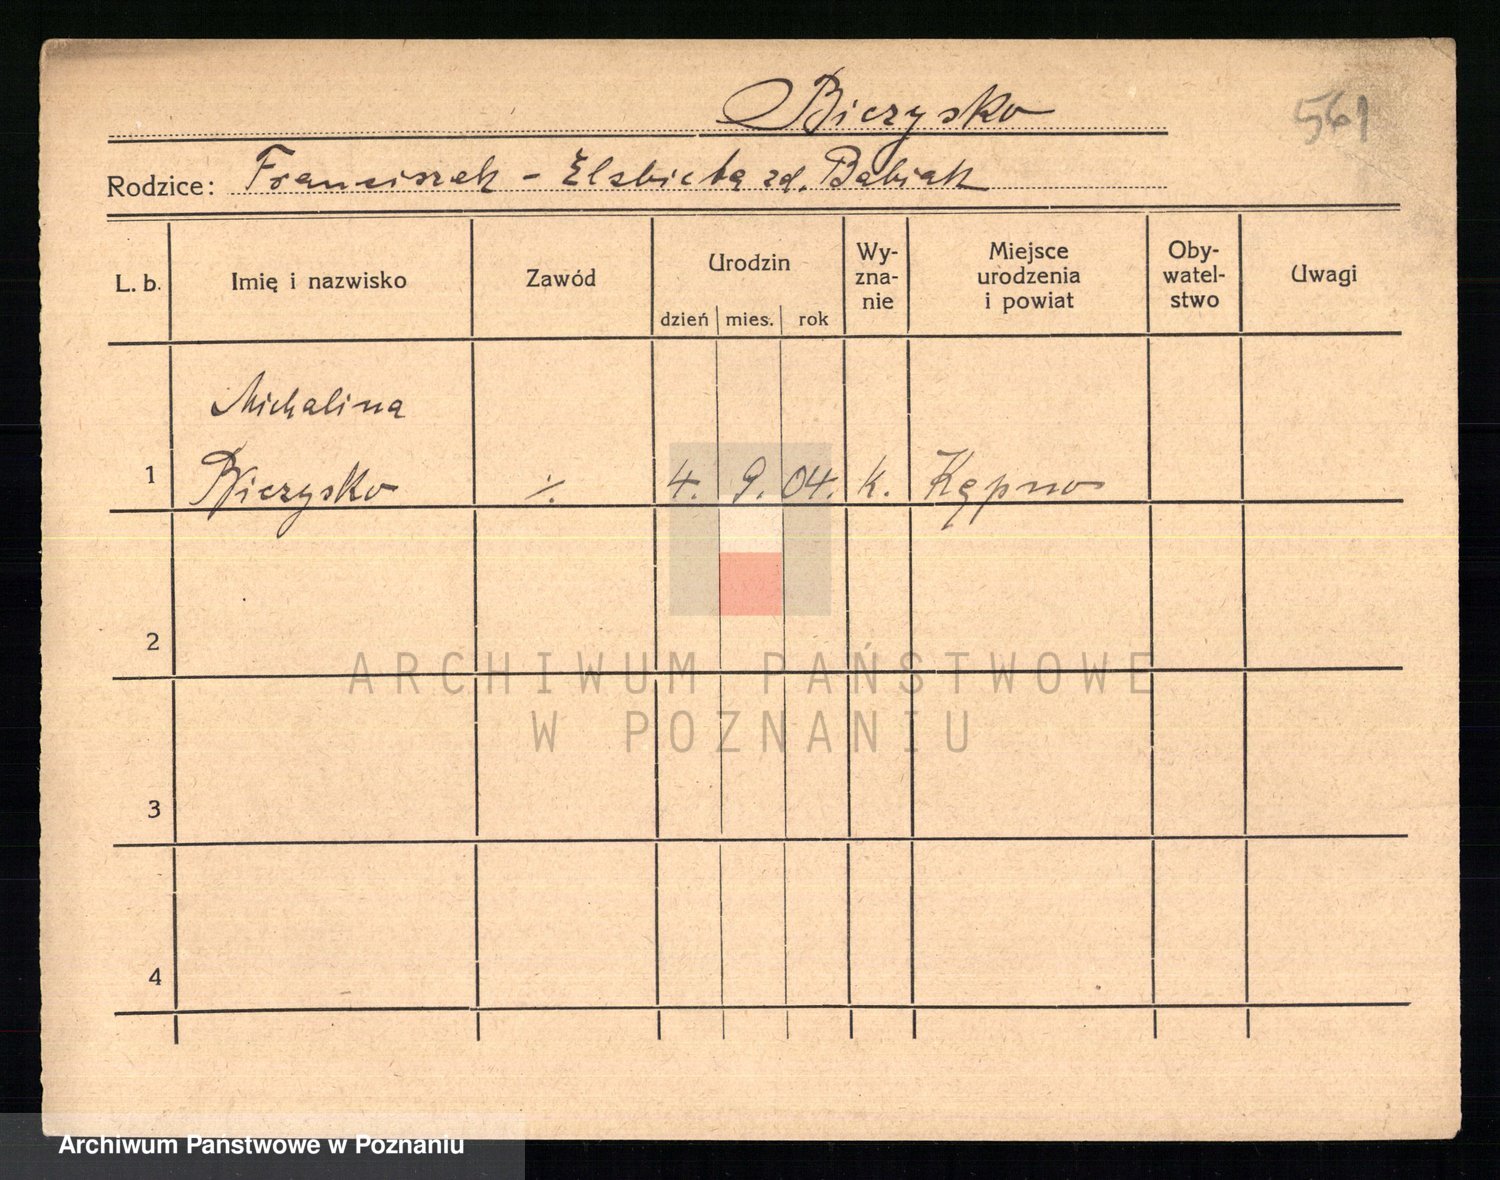 Bierzysko
561
Rodzice: Franciszek - Elżbieta zd. Babiak
L. b. Imię i nazwisko Zawód Urodzin dzień mies. rok Wy-zna-nie Miejsce urodzenia i powiat Oby-watel-stwo Uwagi
Michalina
1 Bierzysko ./. 4. 9. 04. k. Kępno
2
ARCHIWUM PAŃSTWOWE
W POZNANIU
3
4
Archiwum Państwowe w Poznaniu